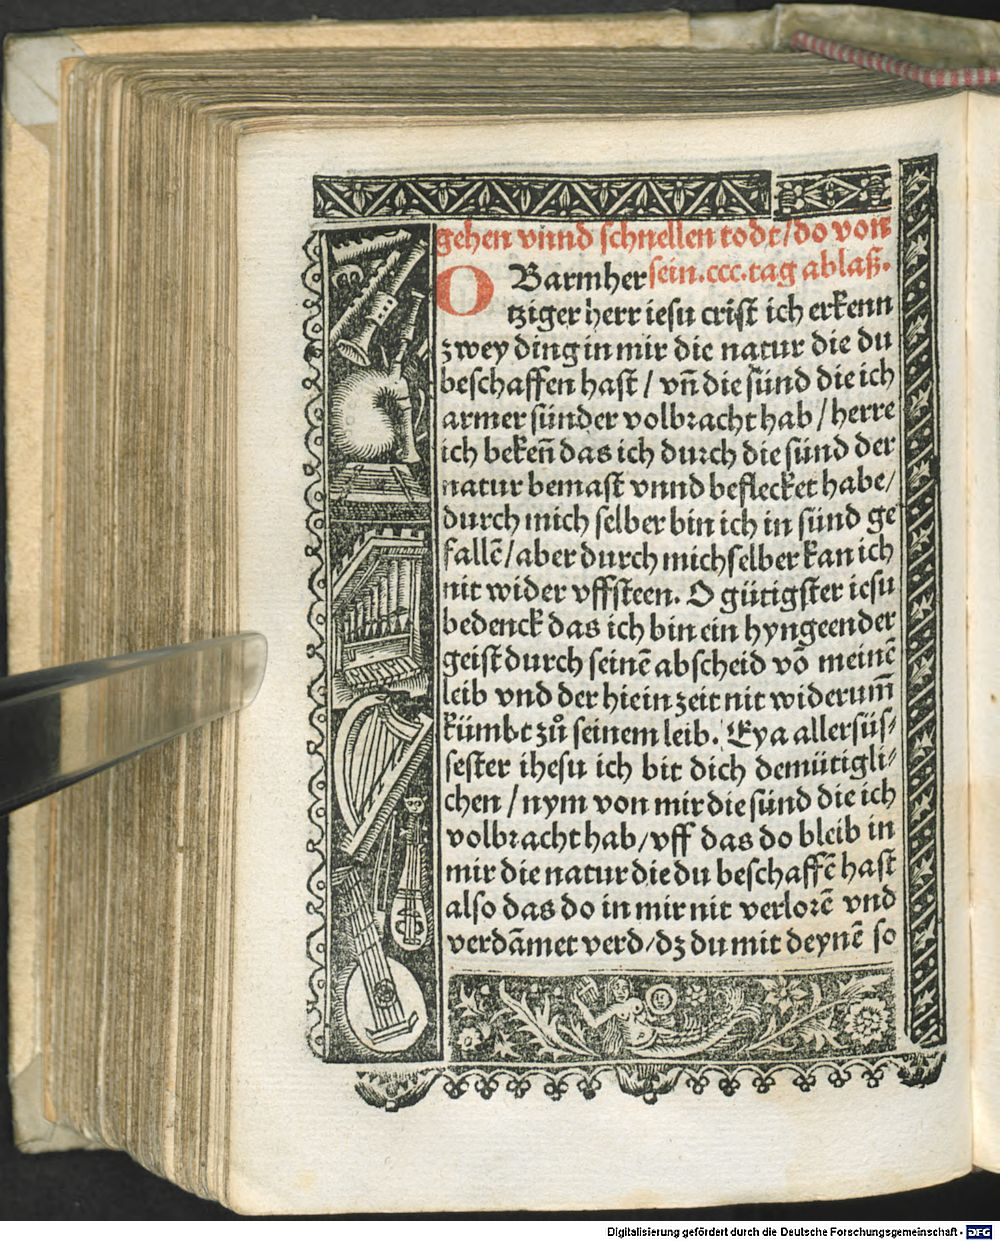 gehen vnnd schnellen todt/do von
sein.ccc.tag ablaß.
O Barmher
tziger herr iesu crist ich erkenn
zwey ding in mir die natur die du
beschaffen hast / vn̄ die sünd die ich
armer sünder volbracht hab / herre
ich beken̄ das ich durch die sünd der
natur bemast vnnd beflecket habe/
durch mich selber bin ich in sünd ge
fallē/aber durch mich selber kan ich
nit wider vffsteen. O gütigster iesu
bedenck das ich bin ein hyngeender
geist durch seinē abscheid vō meinē
leib vnd der hie in zeit nit widerum̄
kümbt zů seinem leib. Eya allersüs⸗
sester ihesu ich bit dich demütigli⸗
chen / nym von mir die sünd die ich
volbracht hab/vff das do bleib in
mir die natur die du beschaffē hast
also das do in mir nit verlorē vnd
verdāmet werd/dz du mit deynē so
Digitalisierung gefördert durch die Deutsche Forschungsgemeinschaft - DFG